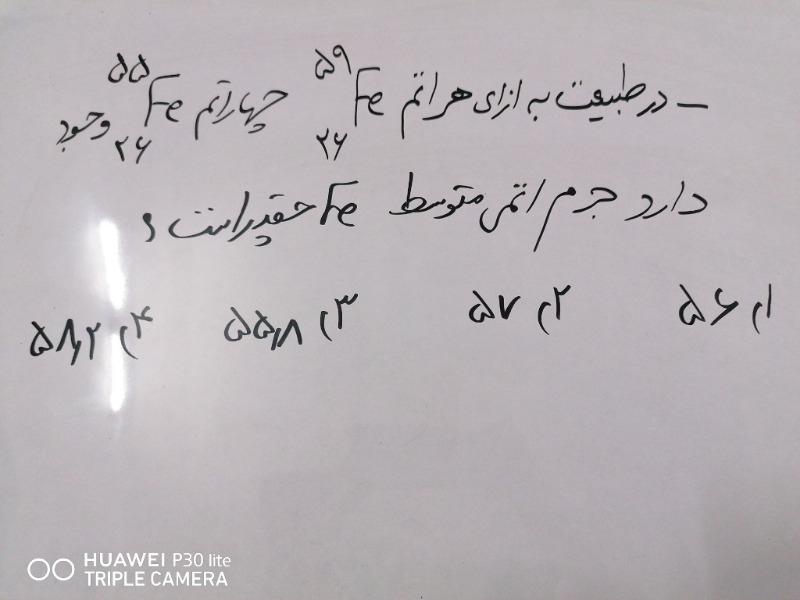 – در طبیعت به ازای هر اتم ⁵⁹₂₆Fe چهار اتم ⁵⁵₂₆Fe وجود
دارد جرم اتمی متوسط Fe چقدر است ؟
۱) ۵۶ ۲) ۵۷ ۳) ۵۵,۸ ۴) ۵۸,۲
HUAWEI P30 lite
TRIPLE CAMERA